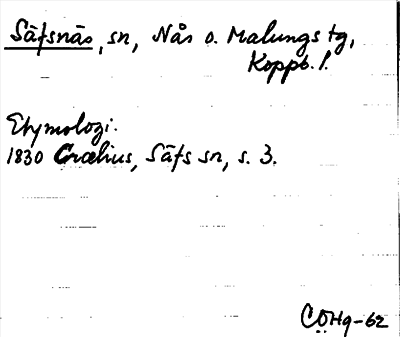 Säfsnäs, sn, Nås o. Malungs tg,
Koppb. l.
Etymologi.
1830 Crælius, Säfs sn, s. 3.
CÖHg-62